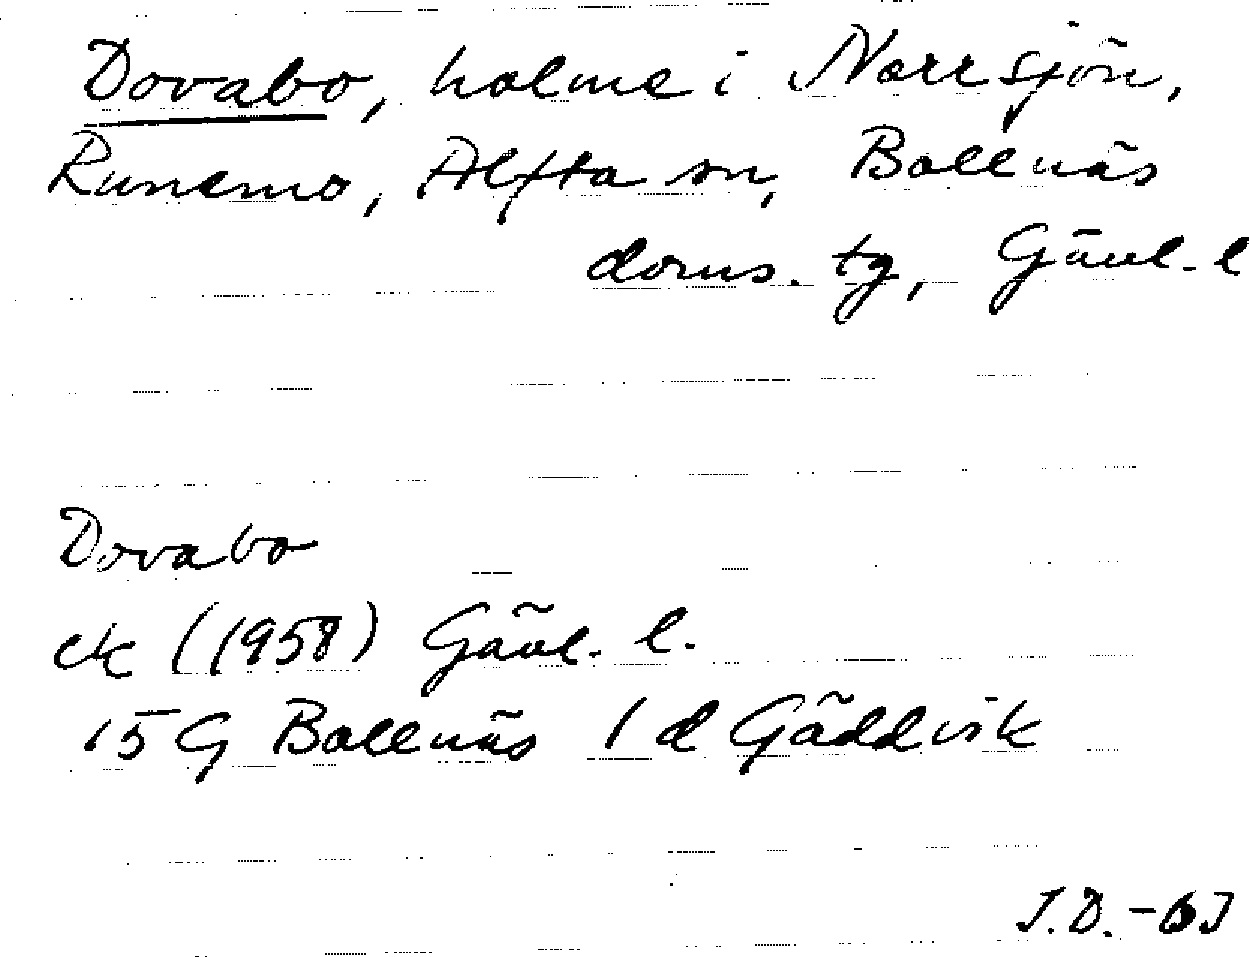 Dovabo, holme i Norrsjön,
Runemo, Alfta sn, Bollnäs
doms. tg, Gävl. l
Dovabo
ek (1958) Gävl. l.
15 G Bollnäs 1 d Gäddvik